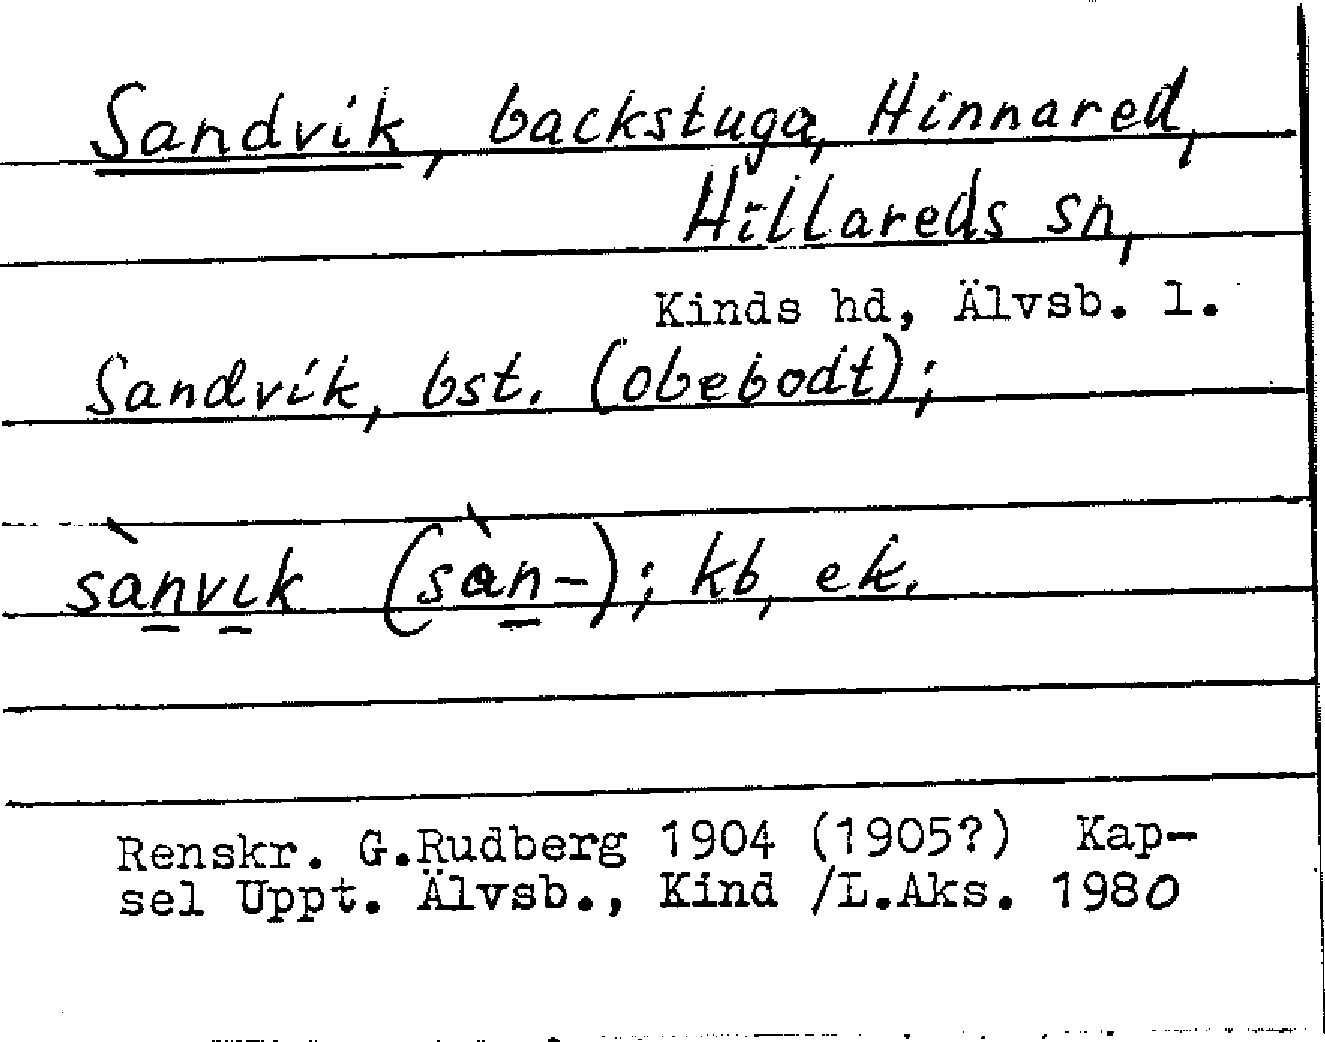 Sandvik, backstuga, Hinnared,
Hillareds sn,
Kinds hd, Älvsb. l.
Sandvik, bst. (obebodt);
sànvık (sàn-); kb, ek.
Renskr. G.Rudberg 1904 (1905?) Kap-
sel Uppt. Älvsb., Kind /L.Aks. 1980